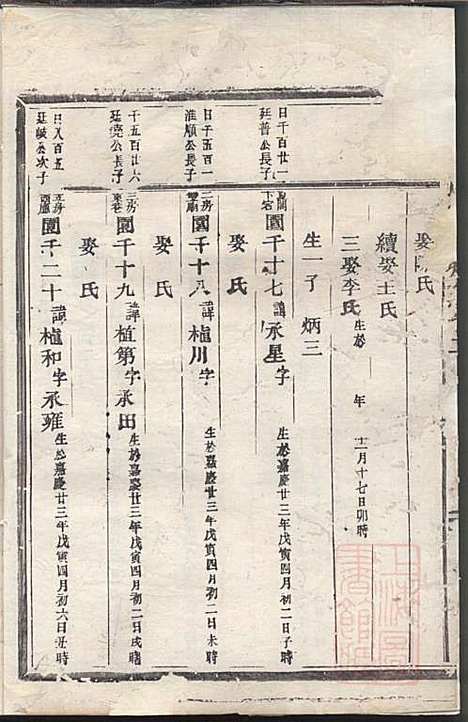 娶 氏
續娶王氏
三娶李氏 生於 年 十二月十七日卯時
生一子 炳三
日千百廿一
廷普公長子
園千十七 諱 承星 字 生於嘉慶廿三年戊寅四月初二日子時
娶 氏
日千五百一
淮順公長子
二房
園千十八 諱 植川 字 生於嘉慶廿三年戊寅四月初二日未時
娶 氏
千五百廿六
廷堯公長子
三房
園千十九 諱 植第 字 承田 生於嘉慶廿三年戊寅四月初二日戌時
娶 氏
日八百五
廷岐公次子
五房
園千二十 諱 植和 字 承雍 生於嘉慶廿三年戊寅四月初六日丑時